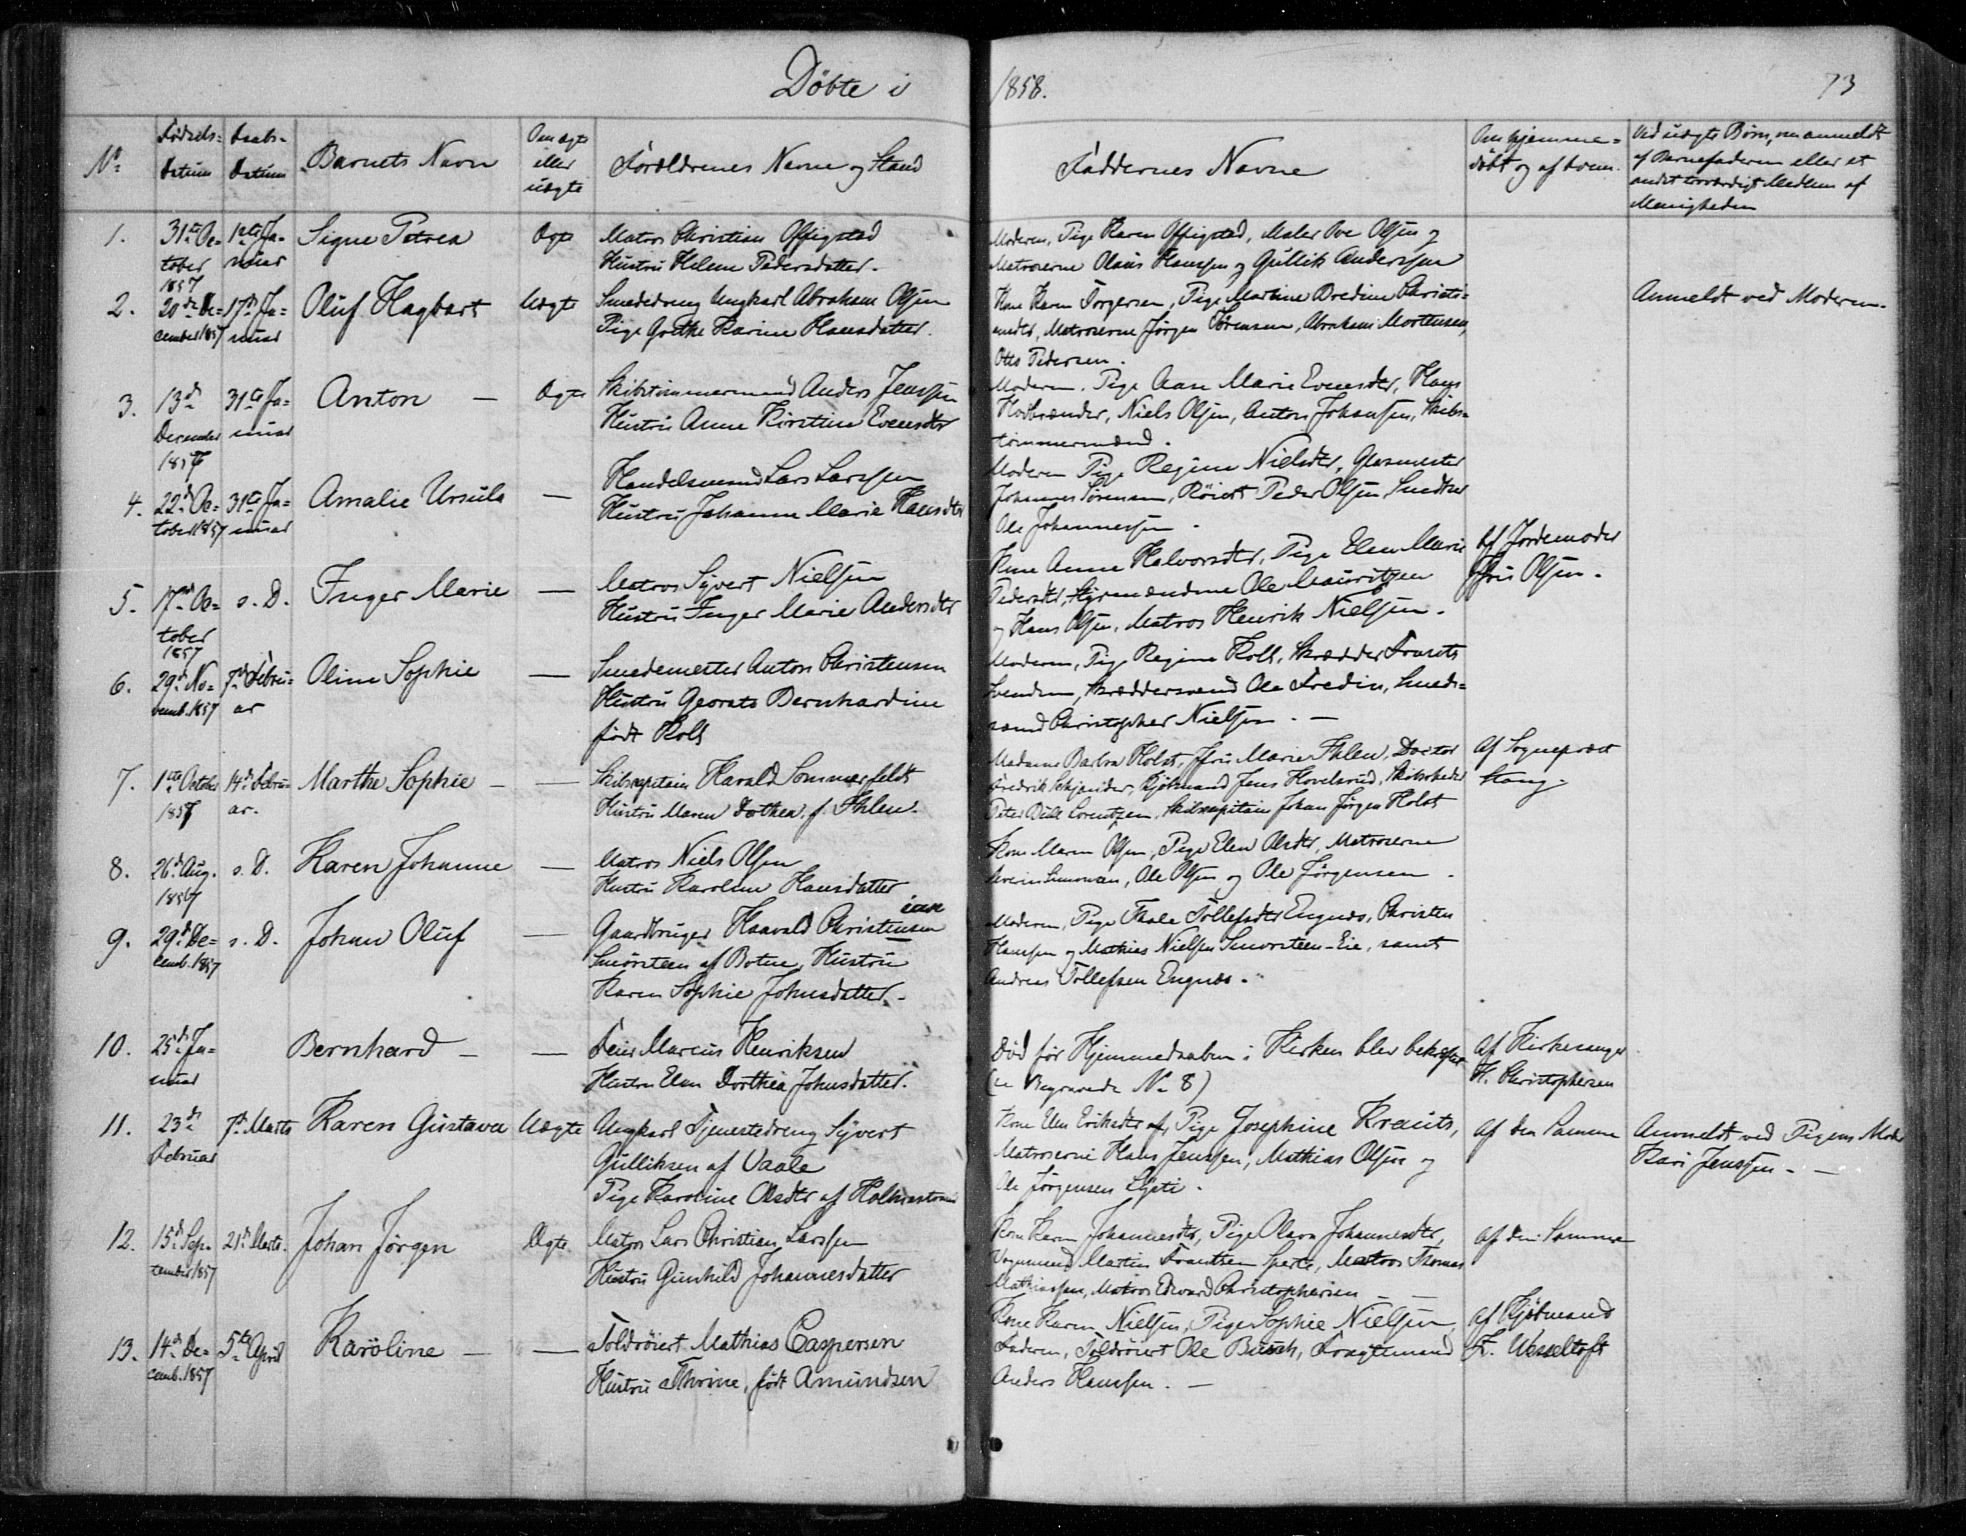 Döbte i 1858. 73
No
Födsels-
Datum
Daabs-
Datum
Barnets Navn
Om ægte
eller
uægte
Forældrenes Navne og Stand
Faddernes Navne
Om hjemme=
döbt og af hvem.
Ved uægte Börn, om anmeldt
af Barnefaderen eller et
andet troværdigt Medlem af
Menigheden
1.
31te Oc=
tober
1857
1ste Ja=
nuar
Signe Petrea
Ægte
Matros Christian Offigstad
Hustru Helene Pedersdatter.
Moderen, Pige Karen Offigstad, Maler Ove Olsen og
Matroserne Olaus Hanssen og Gullik Anderssen
2.
20de De=
cember 1857
17de Ja=
nuar
Oluf Hagbart
Uægte
Smededreng Ungkarl Abraham Olsen
Pige Grethe Karine Hansdatter.
Kone Karen Torgersen, Pige Martine Bredine Christi=
ansdtr, Matroserne Jörgen Sörensen, Abraham Mortensen,
Otto Pedersen.
Anmeldt ved Moderen.
3.
13de
December
1857
31te Ja=
nuar
Anton —
Ægte
Skibstömmermand Anders Jenssen
Hustru Anne Kirstine Evensdtr
Moderen, Pige Aase Marie Evensdtr, Hans
Niels Olsen, Anton Johansen, Skibs=
tömmermænd.
4.
22de Oc=
tober 1857
31te Ja=
nuar
Amalie Ursula
—
Handelsmand Lars Larssen
Hustru Johanne Marie Hansdtr
Moderen Pige Regine Nielsdtr, Glasmester
Johannes Sörensen, Röiert Peder Olsen,
Ole Johannessen.
5.
17de Oc=
tober
1857
s. D.
Inger Marie
—
Matros Syvert Nielsen
Hustru Inger Marie Andersdtr
Kone Anne Halvorsdtr, Pige Elen Marie
Pedersdtr, Styrmændene Ole Mauritzen
og Hans Olsen, Matros Henrik Nielsen.
Af Jordemoder
Jfru Olsen.
6.
29de No=
vemb. 1857
7de Febru=
ar
Oline Sophie
—
Smedemester Anton Christensen
Hustru Georate Bernhardine
födt Holt
Moderen, Pige Regine Holt, Skrædder Frants
Svendsen, Skræddersvend Ole Fredin, Smeds=
svend Christopher Nielsen. —
7.
1ste October
1857
14de Febru=
ar.
Marthe Sophie —
—
Skibscapitain Harald Sommerfeldt
Hustru Maren Dorthea, f. Ihlen.
Madame Barbra Holst, Jfru Marie Ihlen, Doctor
Fredrik Schjander, Kjöbmand Jens Hovelsrud, Skibsrheder
Peter Lorentzen, Skibscapitain Johan Jörgen Holst
Af Sogneprest
Stang.
8.
26de Aug.
1857
s. D.
Karen Johanne
—
Matros Niels Olsen
Hustru Karoline Hansdatter
Kone Maren Olsen, Pige Elen Olsdtr, Matroserne
Severin Simonsen, Ole Olsen og Ole Jörgensen.
9.
29de De=
cemb. 1857
s. D.
Johan Oluf
—
Gaardbruger Haavald Christensen
Smörsteen af Botne, Hustru
Karen Sophie Johnsdatter. —
Moderen, Pige Thale Tollefsdtr Engnæs, Christen
Hanssen og Mathias Nielsen Smörsteen-Eie, samt
Andreas Tollefsen Engnæs.
10.
25de Ja=
nuar
Bernhard —
—
Feier Marcus Henriksen
Hustru Elen Dorthea Johnsdatter.
Död för Hjemmedaaben i Kirken blev bekræftet
(se Begravede No 8)
Af Kirkesanger
H. Christophersen
11.
23de
Februar
7de Marts
Karen Gustava
Uægte
Ungkarl Tjenestedreng Syvert
Gulliksen af Vaale
Pige Karoline Olsdtr af Holmestrand
Kone Elen Eriksdtr, Pige Josephine Krauts,
Matroserne Hans Jenssen, Mathias Olsen og
Ole Jörgensen
af den Samme
Anmeldt ved Pigens Moder
Kari Jenssen. —
12.
15de Sep=
tember 1857
21de Marts.
Johan Jörgen
Ægte
Matros Lars Christian Larssen
Hustru Gunhild Johannesdatter
Kone Karen Johannesdtr, Pige Olava Johannesdtr,
Vognmand Martin Frantsen Sperte, Matros Thomas
Mathiassen, Matros Edvard Christophersen —
af den Samme
13.
14de De=
cemb. 1857
5te April
Karoline —
—
Toldröiert Mathias Caspersen
Hustru Thrine, födt Amundsen
Kone Karen Nielsen, Pige Sophie Nielsen,
Faderen, Toldröiert Ole Busch, Fragtemand
Anders Hanssen. —
af Kjöbmand
F. Wesseltoft